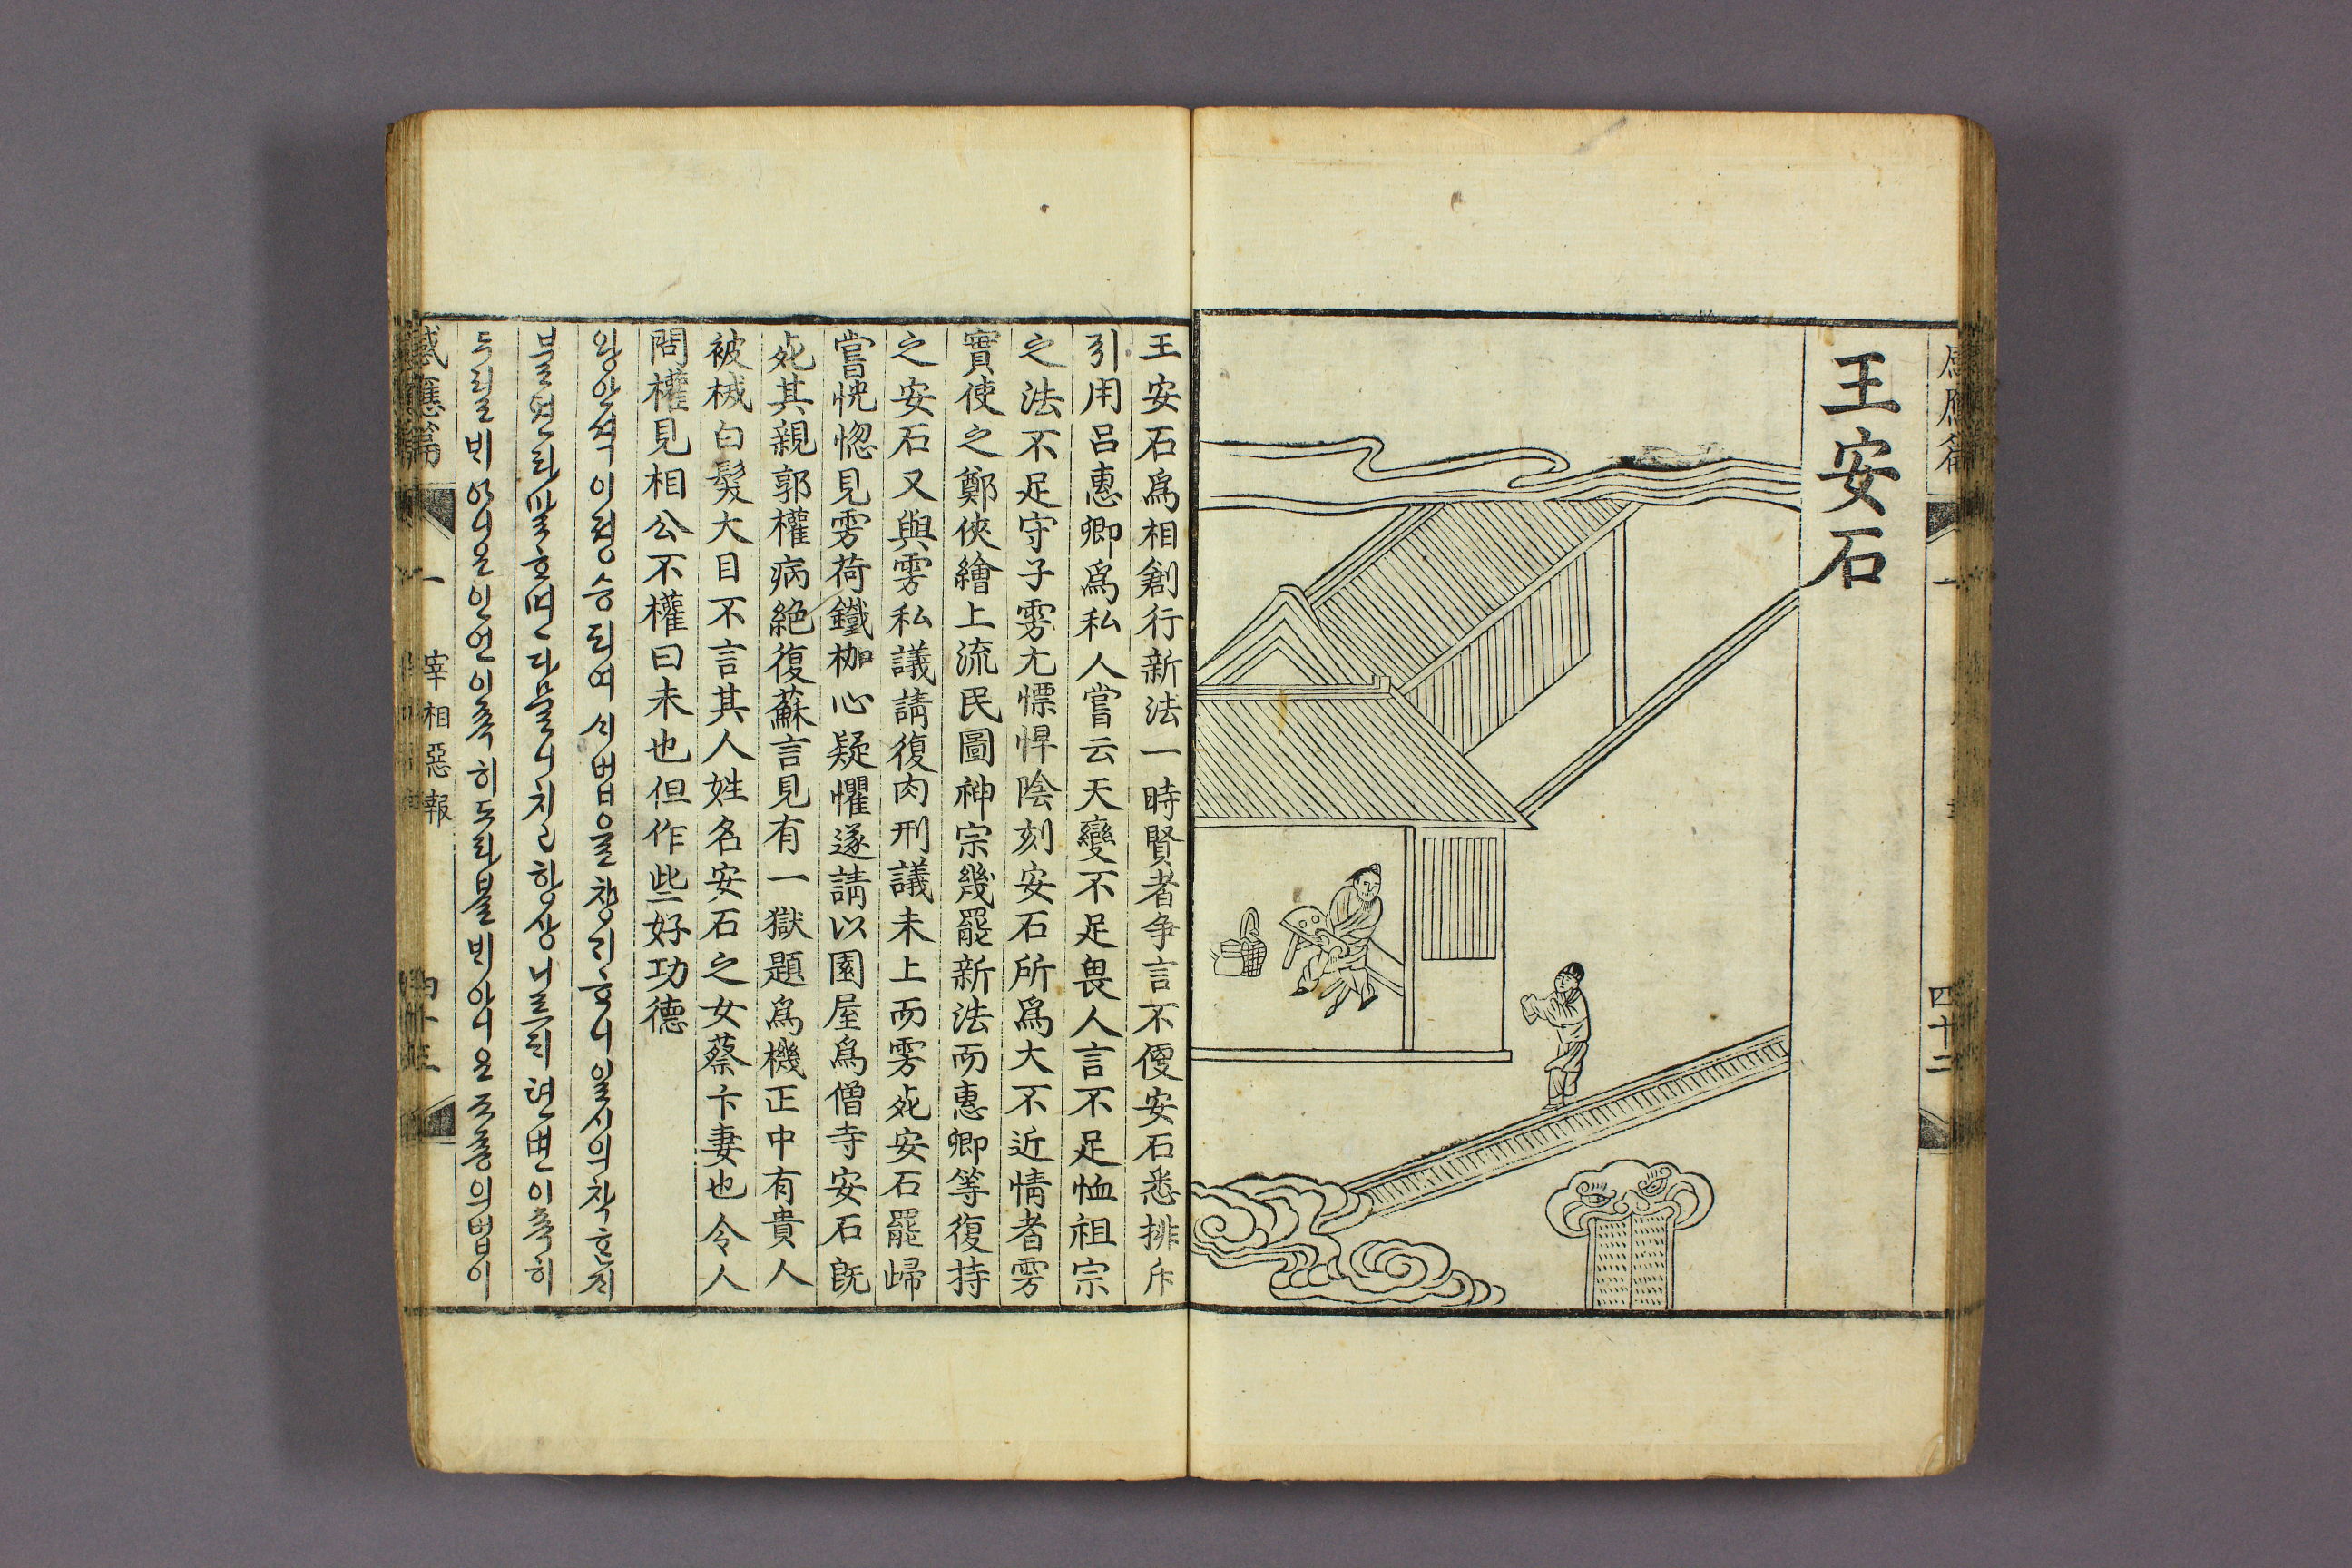 王安石
四十二
王安石爲相創行新法一時賢者争言不便安石悉排斥
引用呂惠卿爲私人嘗云天變不足畏人言不足恤祖宗
之法不足守子雱尤慓悍陰刻安石所爲大不近情者雱
實使之鄭俠繪上流民圖神宗幾罷新法而惠卿等復持
之安石又與雱私議請復肉刑議未上而雱死安石罷歸
嘗恍惚見雱荷鐵枷心疑懼遂請以園屋爲僧寺安石旣
死其親郭權病絶復蘇言見有一獄題爲機正中有貴人
被械白髮大目不言其人姓名安石之女蔡卞妻也令人
問權見相公不權曰未也但作些好功德
왕안셕이졍승되여시법을챵긔ᄒᆞ니일시의착ᄒᆞᆫ지
블편타말ᄒᆞ면다믈니치고항상니ᄅᆞ되텬변이죡히
두릴비아니오인언이죡히도라볼비아니오조종의법이
感應篇 一 宰相惡報